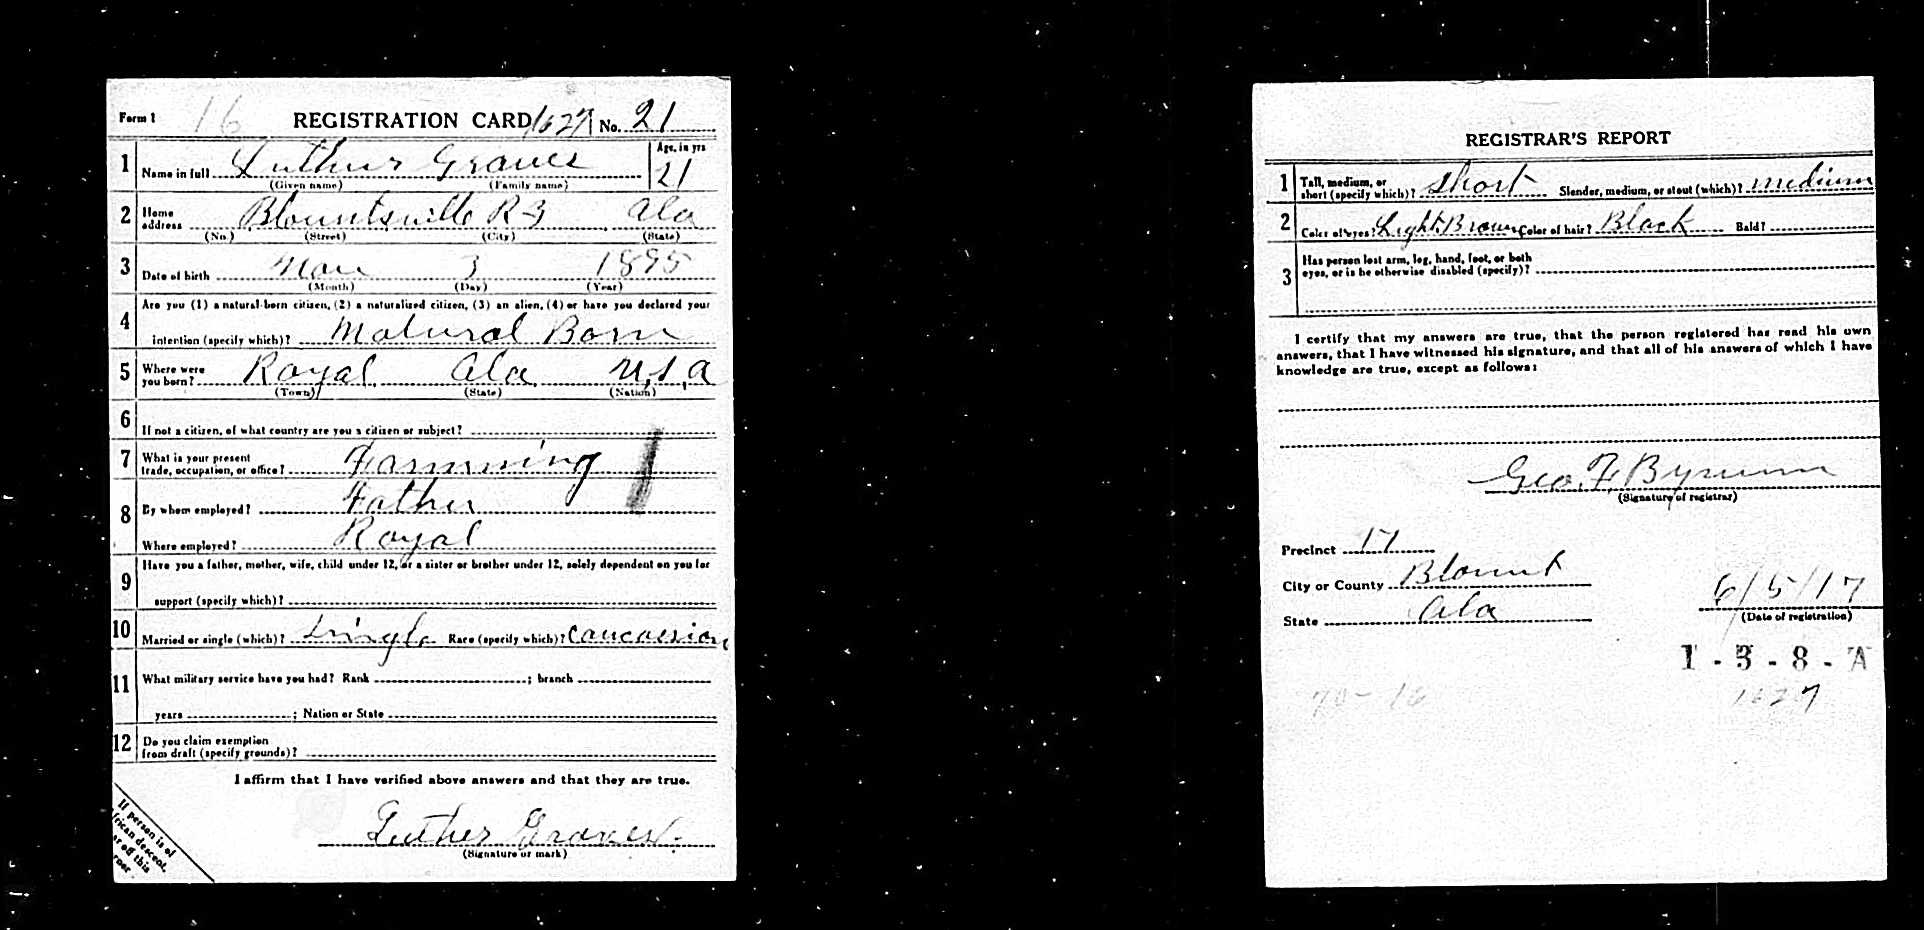 Form 1 16 REGISTRATION CARD 1627 No. 21
1 Name in full Luther Graves Age, in yrs 21
(Given name) (Family name)
2 Home address Blountsville R-3 Ala
(No.) (Street) (City) (State)
3 Date of birth Nov 3 1895
(Month) (Day) (Year)
4 Are you (1) a natural-born citizen, (2) a naturalized citizen, (3) an alien, (4) or have you declared your
intention (specify which)? Natural Born
5 Where were you born? Royal Ala U.S.A
(Town) (State) (Nation)
6 If not a citizen, of what country are you a citizen or subject?
7 What is your present
trade, occupation, or office? Farmming
8 By whom employed? Father
Where employed? Royal
9 Have you a father, mother, wife, child under 12, or a sister or brother under 12, solely dependent on you for
support (specify which)?
10 Married or single (which)? Single Race (specify which)? Caucassian
11 What military service have you had? Rank ; branch
years ; Nation or State
12 Do you claim exemption
from draft (specify grounds)?
I affirm that I have verified above answers and that they are true.
Luther Graves.
(Signature or mark)
If person is of
African descent,
off this
REGISTRAR'S REPORT
1 Tall, medium, or
short (specify which)? Short Slender, medium, or stout (which)? medium
2 Color of eyes? Light Brown Color of hair? Black Bald?
3 Has person lost arm, leg, hand, foot, or both
eyes, or is he otherwise disabled (specify)?
I certify that my answers are true, that the person registered has read his own
answers, that I have witnessed his signature, and that all of his answers of which I have
knowledge are true, except as follows:
Geo. F. Bynum
(Signature of registrar)
Precinct 17
City or County Blount
State Ala
6/5/17
(Date of registration)
1-3-8-A
70-16 1627